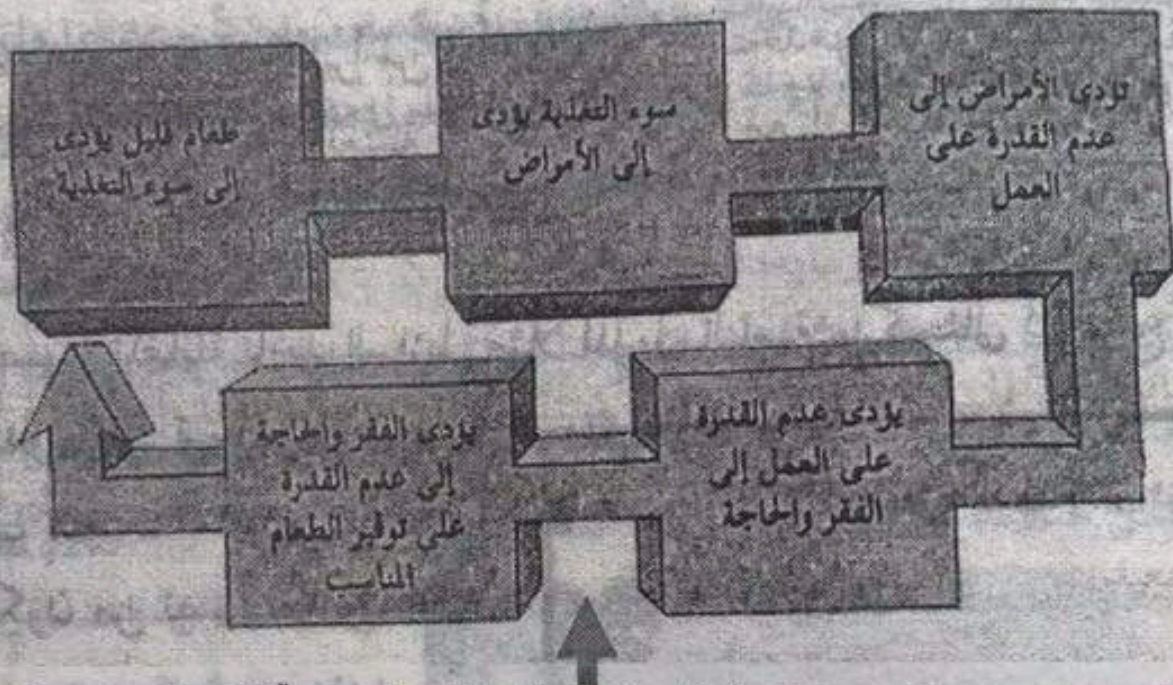 طعام قليل يؤدى
إلى سوء التغذية
سوء التغذية يؤدى
إلى الأمراض
تؤدى الأمراض إلى
عدم القدرة على
العمل
يؤدى عدم القدرة
على العمل إلى
الفقر والحاجة
يؤدى الفقر والحاجة
إلى عدم القدرة
على توفير الطعام
المناسب